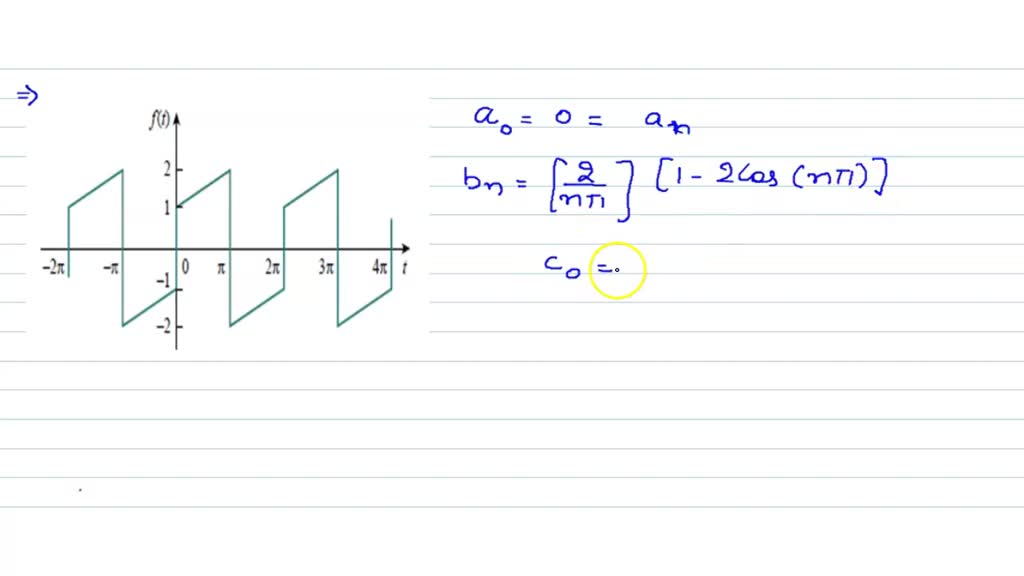 ⇒
f(t)
2
1
-2π -π 0 π 2π 3π 4π t
-1
-2
a₀ = 0 = aₙ
bₙ = [2/nπ] [1 - 2Cos (nπ)]
c₀ =